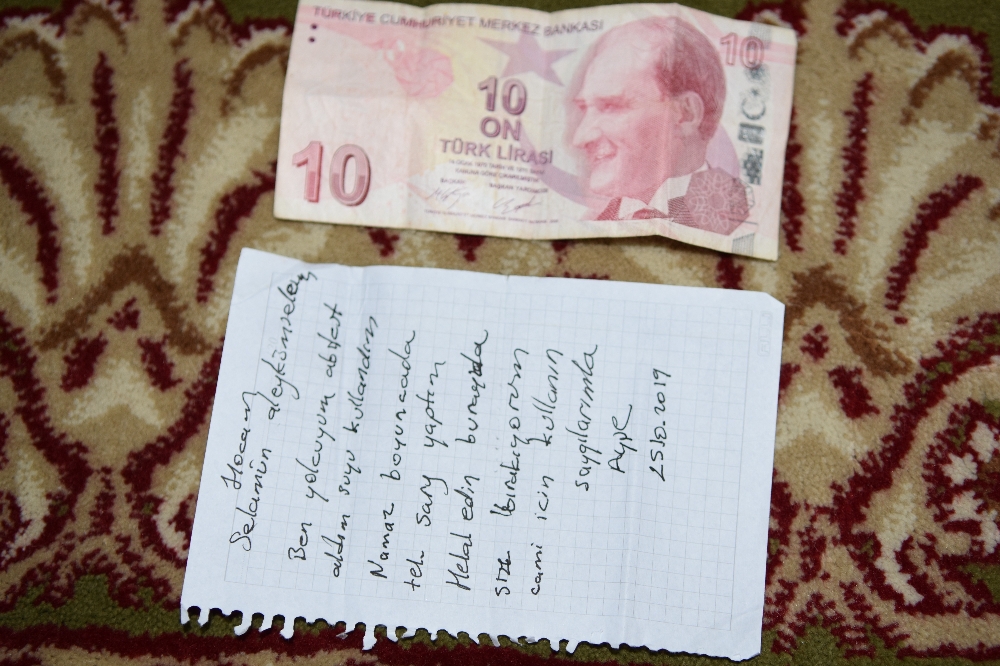 TÜRKİYE CUMHURİYET MERKEZ BANKASI
10
10
ON
TÜRK LİRASI
BAŞKAN
BAŞKAN YARDIMCISI
10
Hocam
Selamün aleykümselam
Ben yolcuyum abdest
aldım suyu kullandım
Namaz boyuncada
tel. sarj yaptım
Helal edin burayada
size bırakıyorum
cami icin kullanın
saygılarımla
Ayşe
25.10.2019